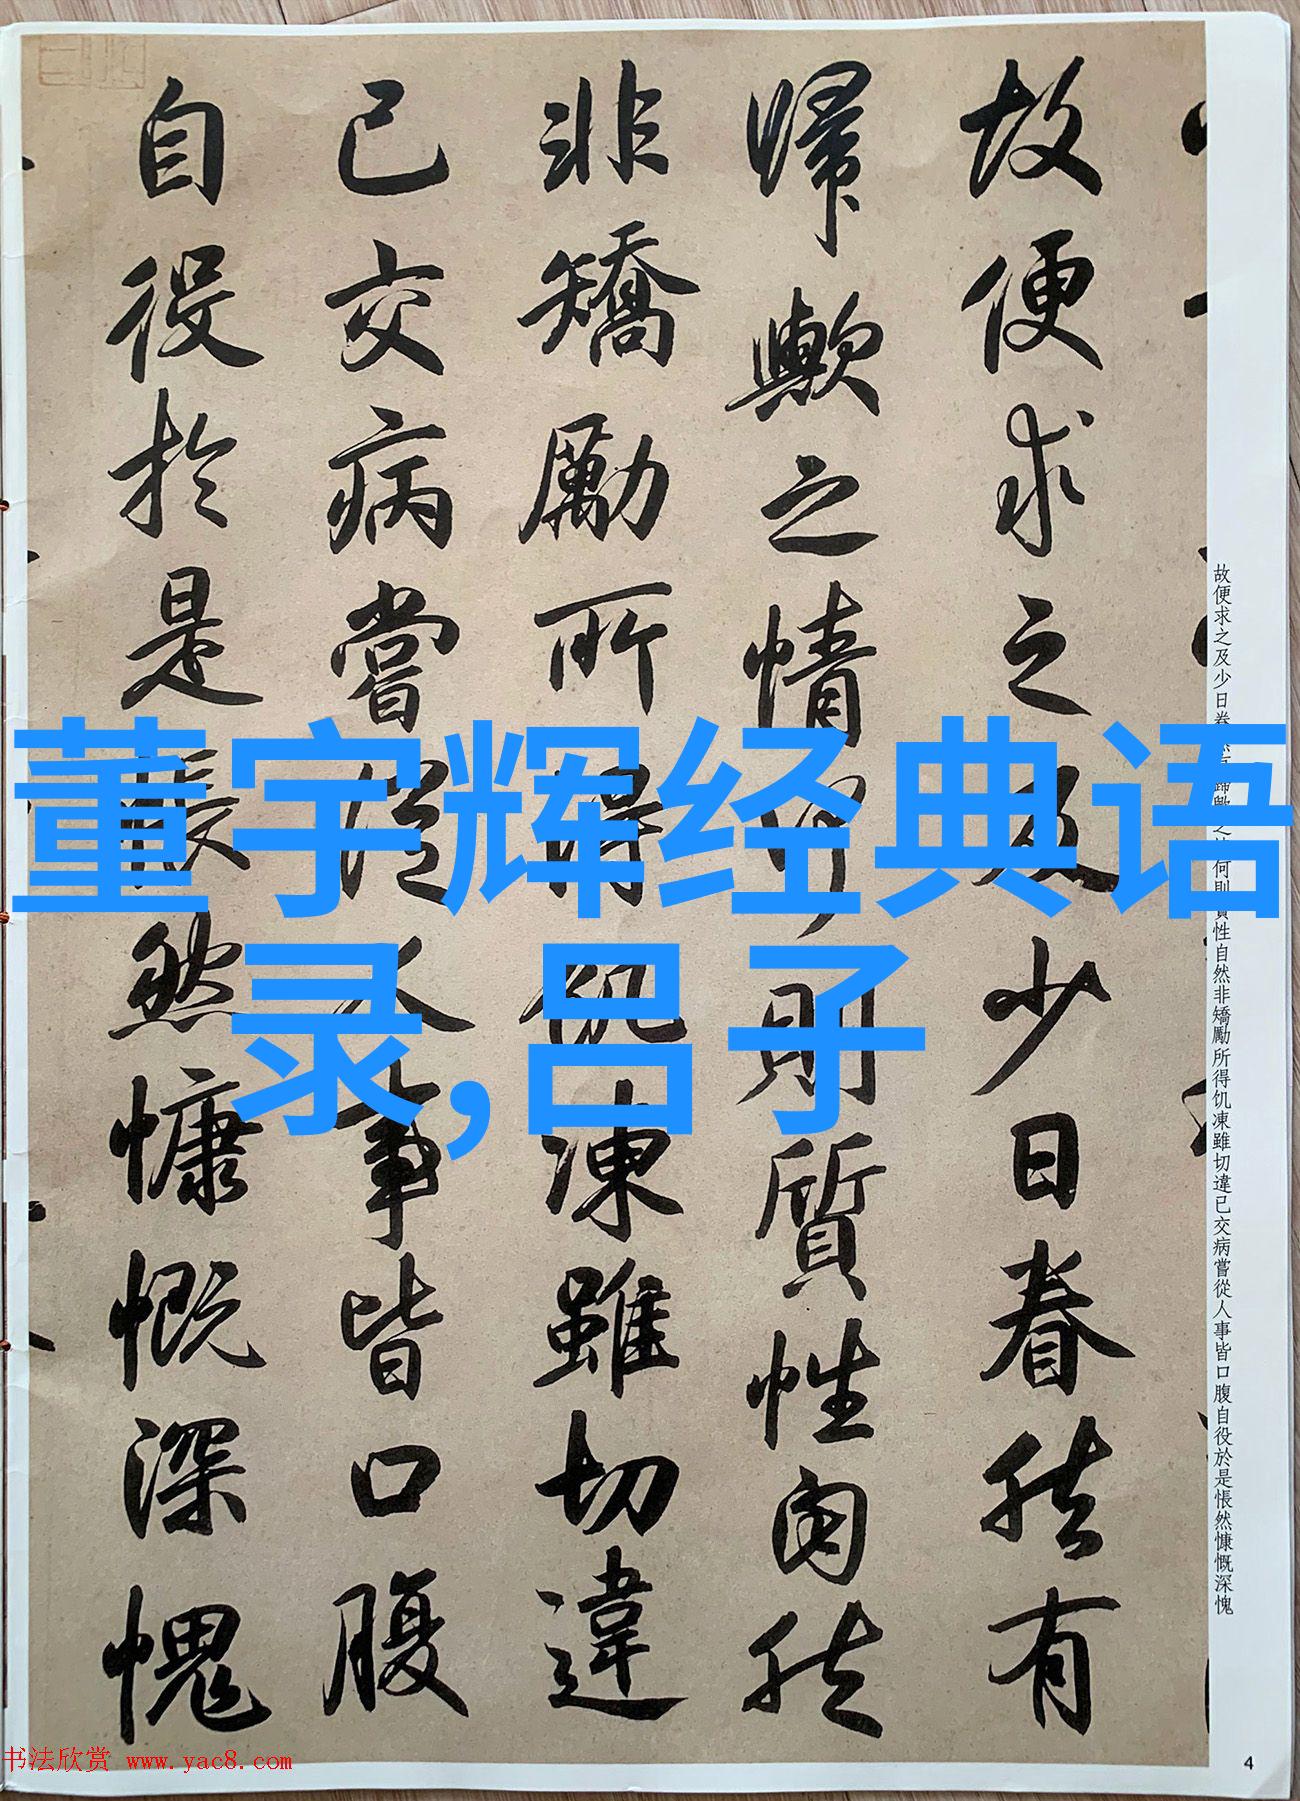 故便求之及少日眷然有
歸歟之情何則質性自然
非矯勵所得飢凍雖切違
已交病嘗從人事皆口腹
自役於是悵然慷慨深愧
故便求之及少日眷然有歸歟之情何則質性自然非矯勵所得饥凍雖切違已交病嘗從人事皆口腹自役於是悵然慷慨深愧
董宇辉经典语
录,吕子
书法欣赏 www.yac8.com
4